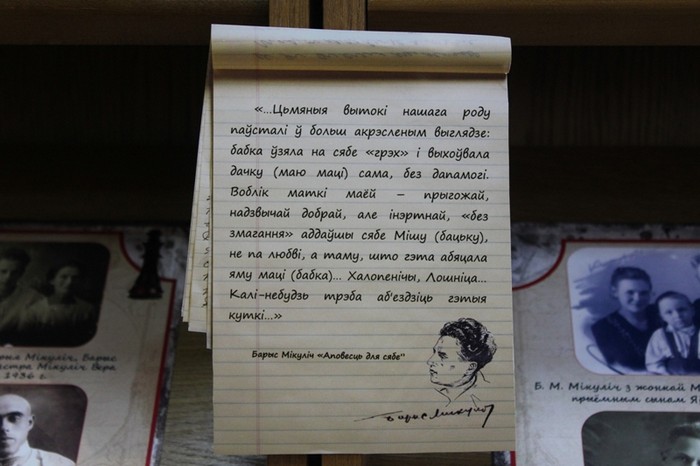 «...Цьмяныя вытокі нашага роду
паўсталі ў больш акрэсленым выглядзе:
бабка ўзяла на сябе «грэх» і выхоўвала
дачку (маю маці) сама, без дапамогі.
Воблік маткі маёй – прыгожай,
надзвычай добрай, але інэртнай, «без
змагання» аддаўшы сябе Мішу (бацьку),
не па любві, а таму, што гэта абяцала
яму маці (бабка)... Халопенічы, Лошніца...
Калі-небудзь трэба аб'ездзіць гэтыя
куткі...»
Барыс Мікуліч «Аповесць для сябе"
Мікуліч, Барыс
Мікуліч Вера
1936 г.
Б. М. Мікуліч з жонкай
прыёмным сынам